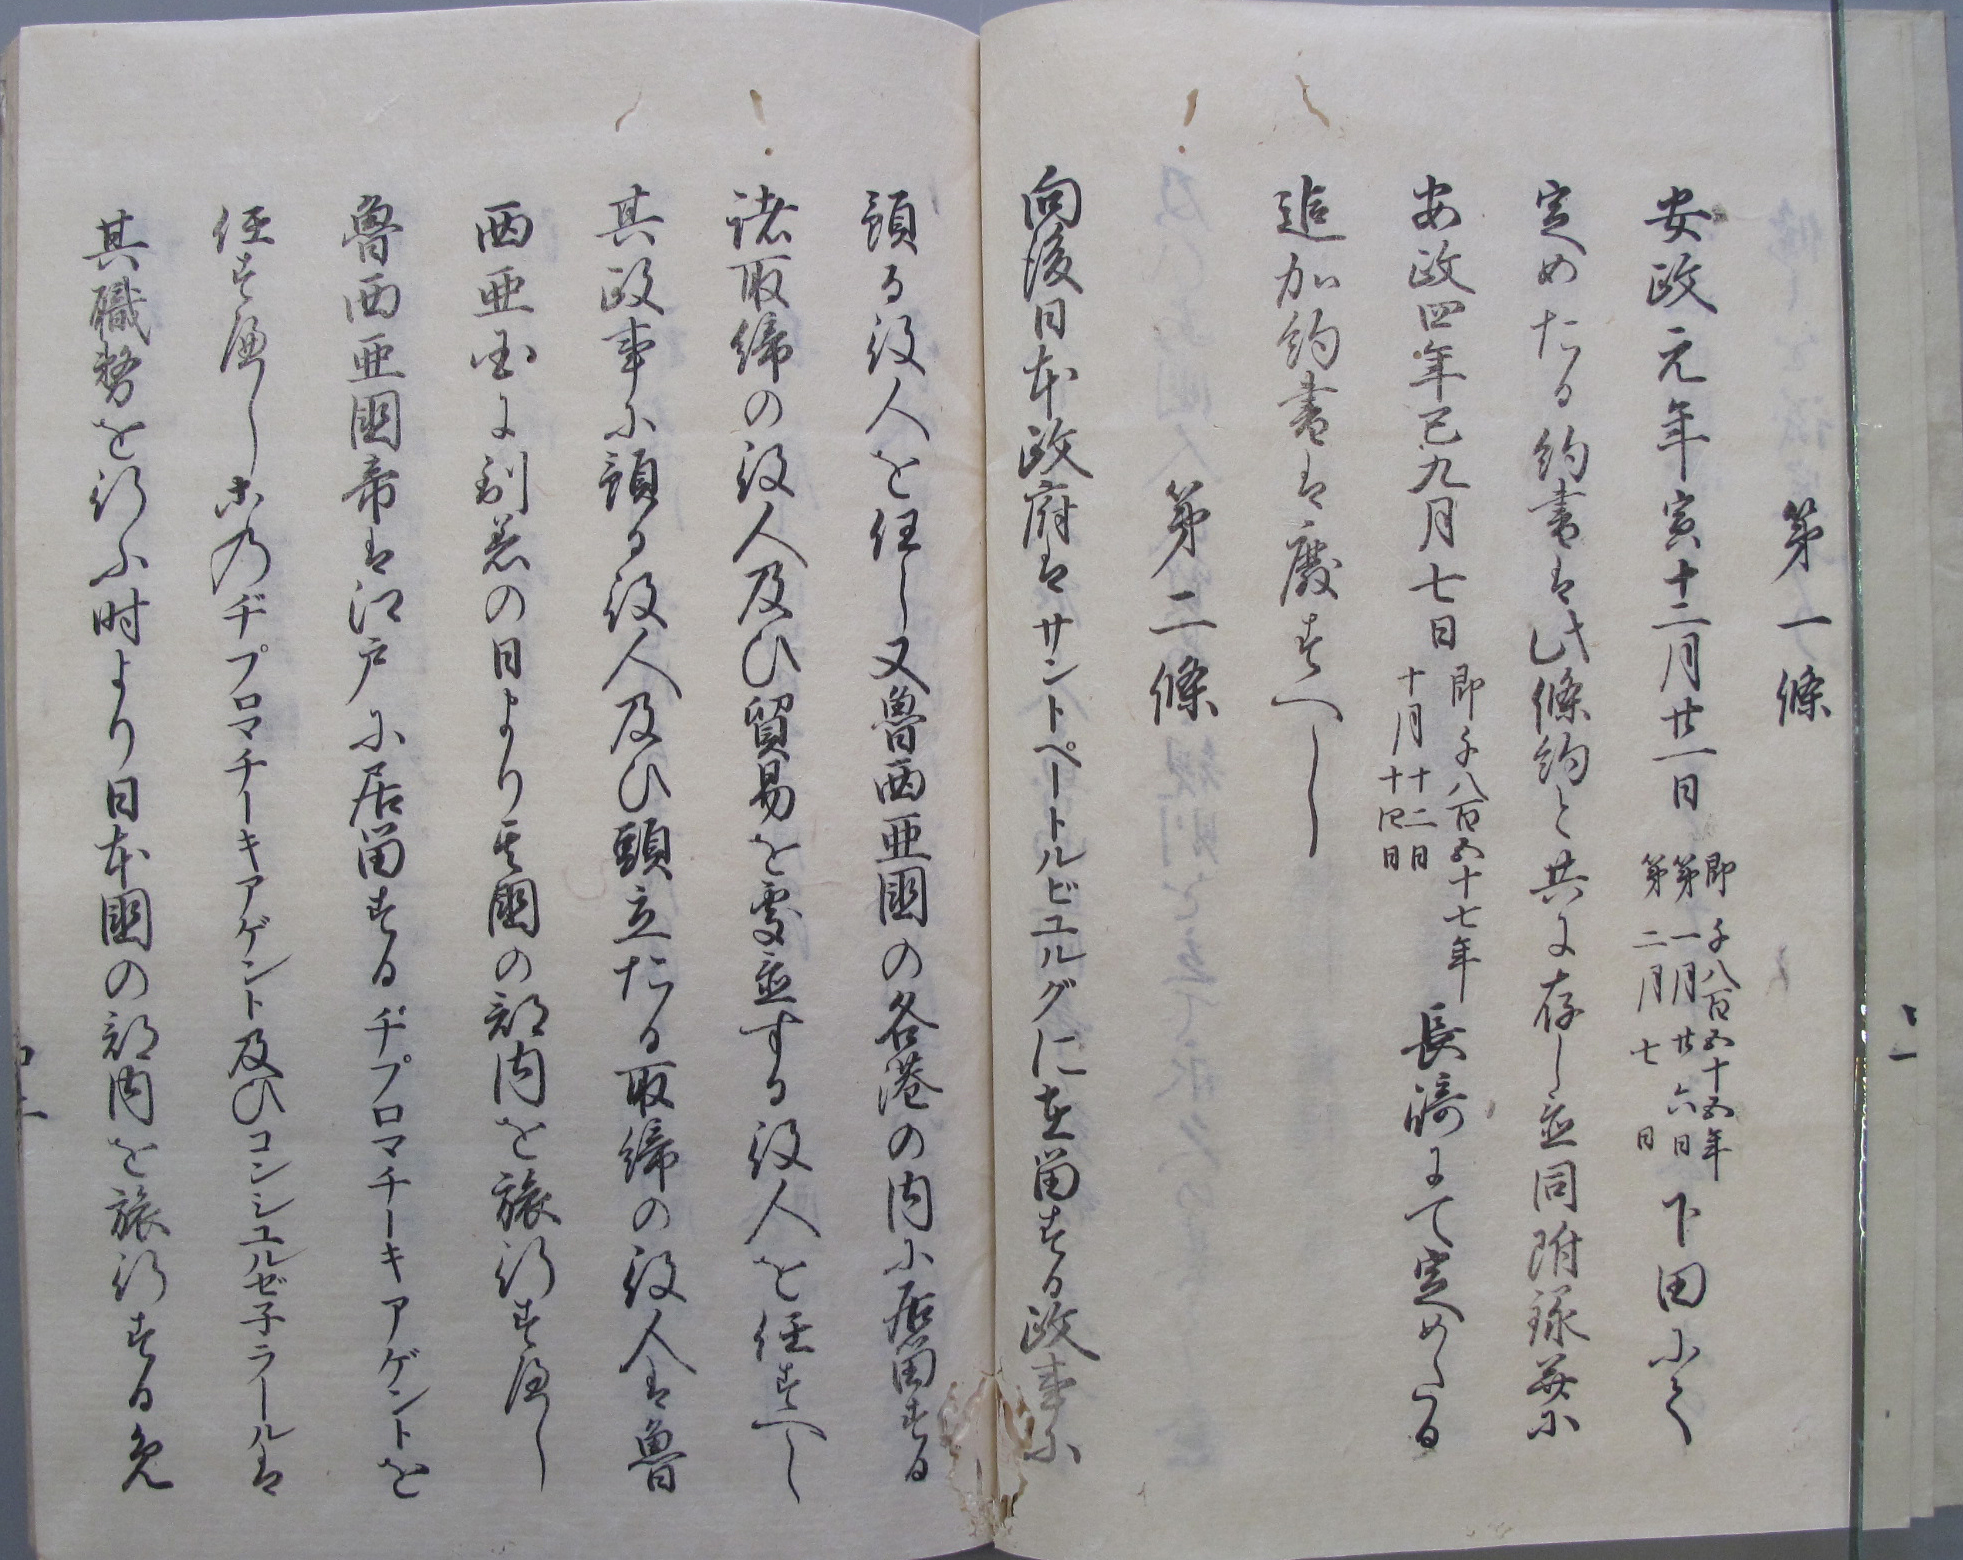 第一條
安政元年寅十二月廿一日 即千八百五十五年第一月廿六日第二月七日 下田にて
定めたる約書は此條約と共に存し並同附録並に
安政四年巳九月七日 即千八百五十七年十月十二日十月十四日 長濤にて定めたる
追加約書は廢すへし
第二條
向後日本政府はサントペートルビユルグに在留する政事に
預る役人を任し又魯西亜國の各港の内に居留する
諸取締の役人及ひ貿易を處置する役人を任すへし
其政事に預る役人及ひ頭立たる取締の役人は魯
西亜国に到着の日より其國の部内を旅行すへし
魯西亜國帝は江戸に居留するヂプロマチーキアゲントを
任すへしこのヂプロマチーキアゲント及ひコンシユルゼ子ラールは
其職務を行ふ時より日本國の部内を旅行する免